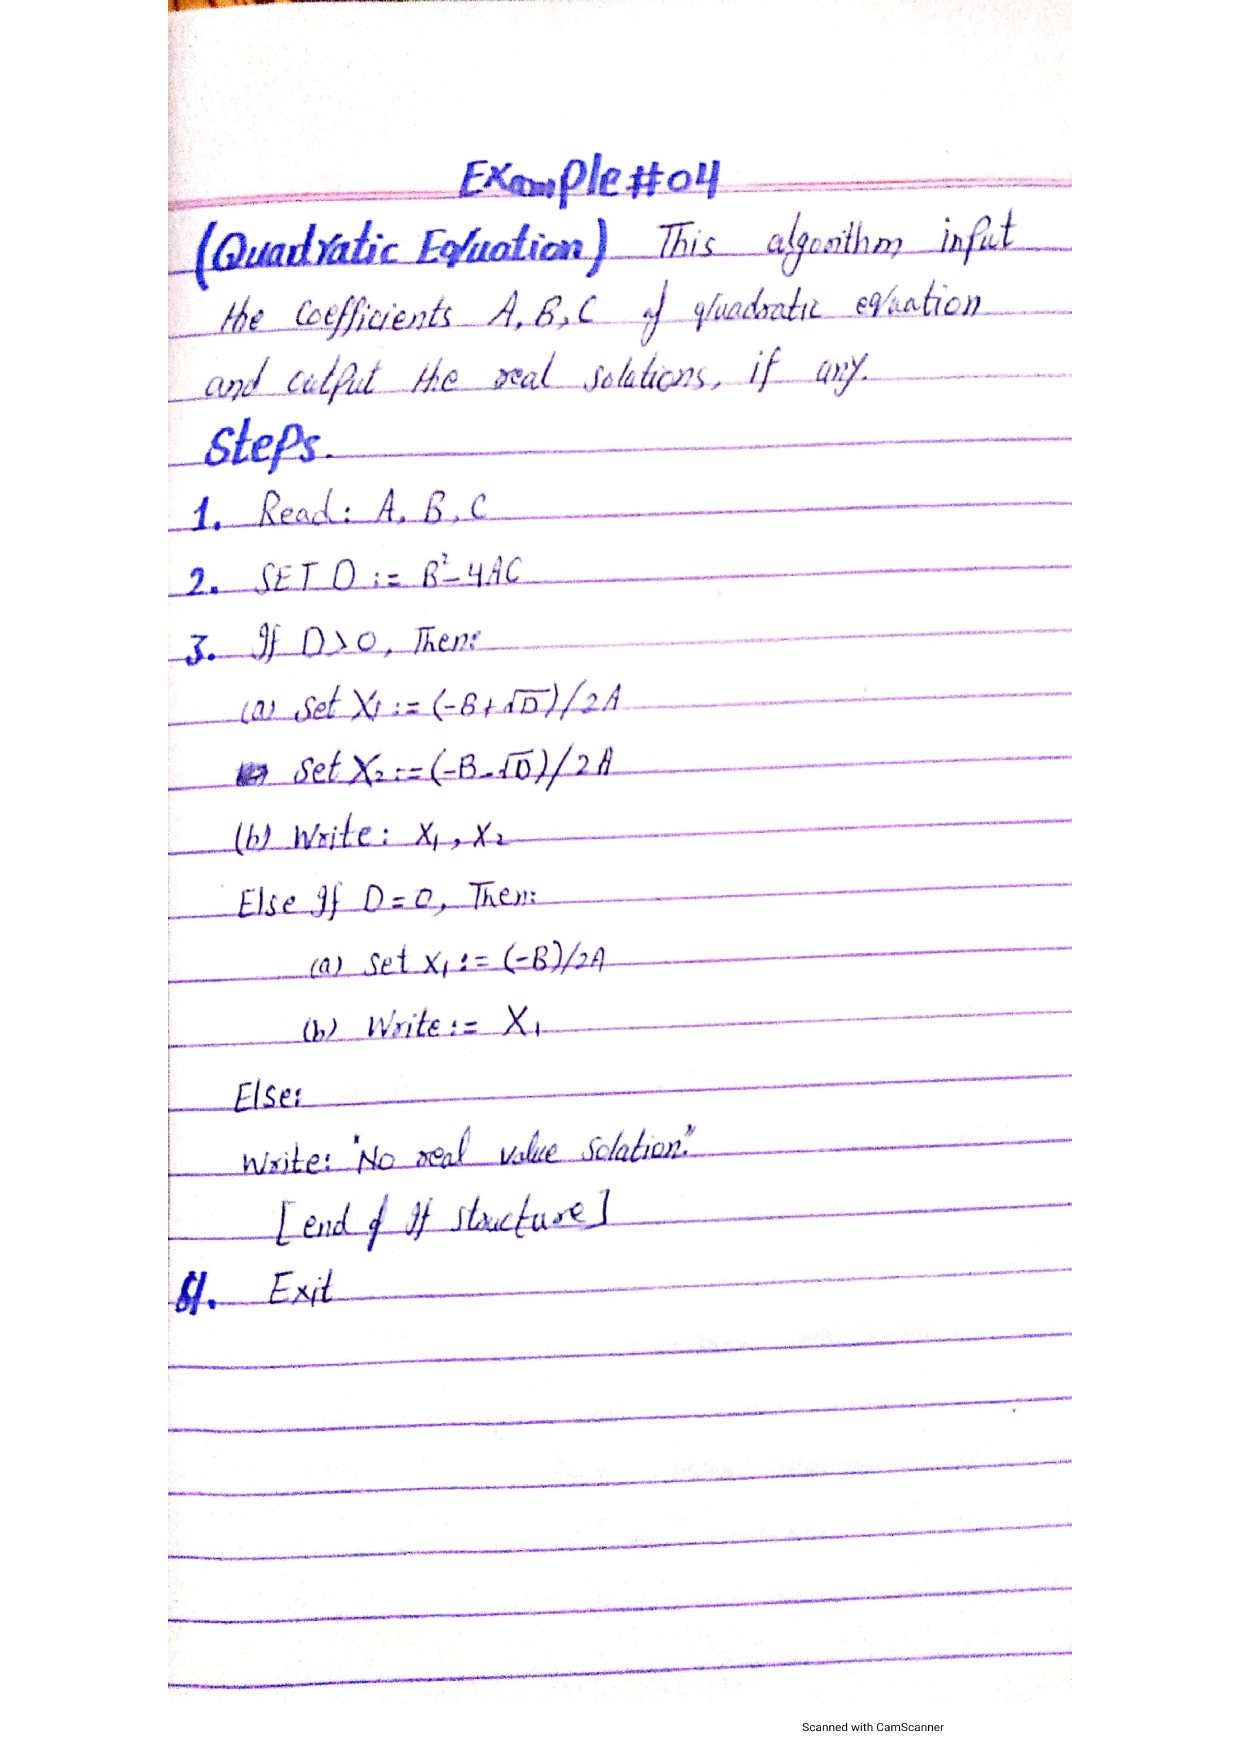 Example #04
(Quadratic Equation) This algorithm input
the coefficients A, B, C of quadratic equation
and output the real solutions, if any.
Steps.
1. Read: A, B, C
2. SET D := B²-4AC
3. If D>0, Then:
(a) Set X₁ := (-B+√D)/2A
Set X₂ := (-B-√D)/2A
(b) Write: X₁, X₂
Else If D=0, Then:
(a) Set X₁ := (-B)/2A
(b) Write := X₁
Else:
Write: "No real value solation."
[end of If structure]
4. Exit
Scanned with CamScanner